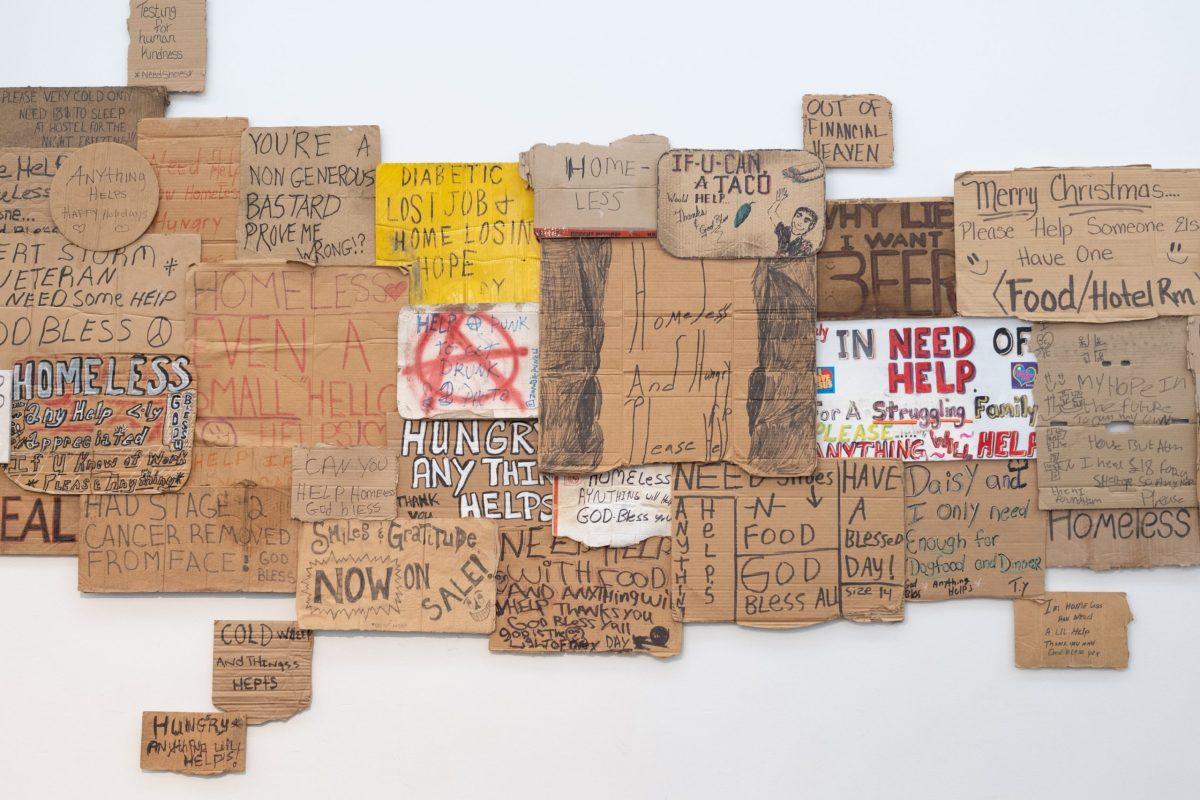 Testing
for
human
kindness
*Need Shoes*
PLEASE VERY COLD ONLY
NEED 18$ TO SLEEP
AT HOSTEL FOR THE
NIGHT FREEZING!!!
ANYTHING
HELPS
HAPPY Holidays
Need HELP
Homeless
Hungry
YOU'RE A
NON GENEROUS
BASTARD
PROVE ME
WRONG!?
DIABETIC
LOST JOB &
HOME LOSIN
HOPE
HOME-
LESS
IF-U-CAN,
A TACO
Would HELP...
Thanks
OUT OF
FINANCIAL
HEAVEN
WHY LIE
I WANT
BEER
Merry Christmas....
Please Help Someone Els
Have One
Food/Hotel Rm
ERT STORM
VETERAN
I NEED Some HELP
OD BLESS
HOMELESS
EVEN A
SMALL "HELLO
HELP A PUNK
to GET
DRUNK
Homeless
And Hungry
Please Help
IN NEED OF
HELP.
For A Struggling Family
PLEASE.....
ANYTHING Will HELP
MY HOPE IN
the future
Have But Am
Please
HOMELESS
Any Help <-ly
Appreciated
If U Know of Work
*PLease Anything*
GOD
BLESS
U
EAL
HELP IF
CAN YOU
HELP Homeless
God bless
HUNGRY
ANY THIN
HELPS
THANK
YOU
HOMELESS
ANYTHING will Help
GOD-Bless you
NEED Shoes
-N-
FOOD
GOD
BLESS ALL
ANYTHIN
HELPS
HAVE
A
BLessed
DAY!
Size 14
Daisy and
I only need
Enough for
Dogfood and Dinner
Anything
Helps
T.Y
HOMELESS
HAD STAGE 2
CANCER REMOVED
FROM FACE!
GOD
BLESS
Smiles & Gratitude
NOW ON
SALE!
NEED HELP
WITH FOOD
AND ANYTHING WIL
HELP THANKS YOU
GOD BLESS Yall
DAY
I'm HOMELESS
AN Need
A LIL Help
THANK YOU AND
God BLess
COLD
AND THINGSS
HEPTS
HUNGRY
ANYthing will
HELPS!